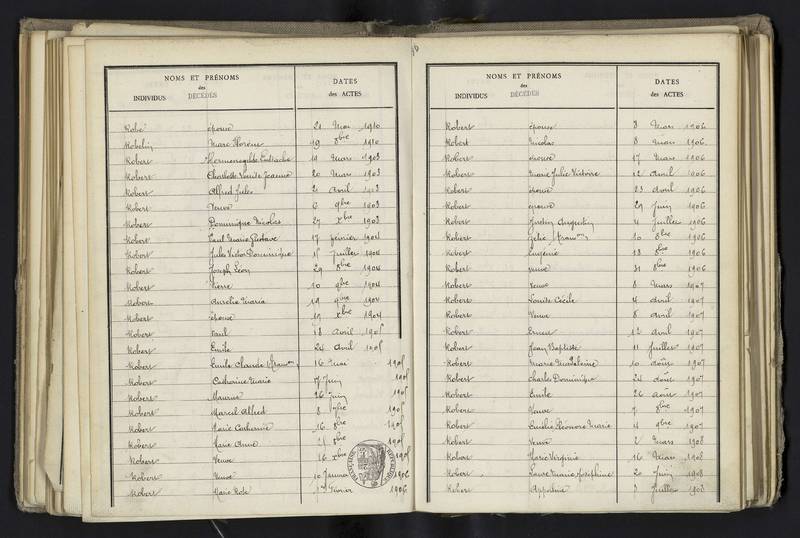 NOMS ET PRÉNOMS
des
INDIVIDUS DÉCÉDÉS
DATES
des ACTES
Robé épouse 21 Mai 1910
Robelin Marc 19 8bre 1910
Robert Hermenegilde Eustache 19 Mars 1903
Robert Charlotte Louise Jeanne 20 Mars 1903
Robert Alfred Jules 21 Avril 1903
Robert Veuve 6 9bre 1903
Robert Dominique Nicolas 27 Xbre 1903
Robert Paul Marie Gustave 17 février 1904
Robert Jules Victor Dominique Juillet 1904
Robert Joseph Léon 29 8bre 1904
Robert Pierre 10 9bre 1904
Robert Aurélie Maria 19 9bre 1904
Robert épouse 19 Xbre 1904
Robert Paul 18 Avril 1905
Robert Emile 24 Avril 1905
Robert Emile Claude 16 Mai 1905
Robert Catherine Marie Juin 1905
Robert Maurice 26 Juin 1905
Robert Marcel Alfred 8 1905
Robert Marie Catherine 16 8bre 1905
Robert Marie Anne 21 8bre 1905
Robert Veuve 16 Xbre 1905
Robert Veuve 10 Janvier 1906
Robert Marie Rose Février 1906
NOMS ET PRÉNOMS
des
INDIVIDUS DÉCÉDÉS
DATES
des ACTES
Robert épouse 8 Mars 1906
Robert Nicolas 8 Mars 1906
Robert épouse 17 Mars 1906
Robert Marie Julie Victoire 12 Avril 1906
Robert épouse 23 avril 1906
Robert épouse 29 Juin 1906
Robert Justin Augustin 4 Juillet 1906
Robert Zélie 10 8bre 1906
Robert Eugénie 18 8bre 1906
Robert veuve 31 8bre 1906
Robert Veuve 8 Mars 1907
Robert Louise Cécile 4 avril 1907
Robert Veuve 8 avril 1907
Robert Ernest 12 avril 1907
Robert Jean Baptiste 11 Juillet 1907
Robert Marie Madeleine 10 août 1907
Robert Charles Dominique 24 août 1907
Robert Emile 26 août 1907
Robert Veuve 7 8bre 1907
Robert Emélie Eléonore Marie 4 9bre 1907
Robert Veuve 2 Mars 1908
Robert Marie Virginie 16 Mai 1908
Robert Louise Marie Joséphine 20 Juin 1908
Robert Appoline 3 Juillet 1908